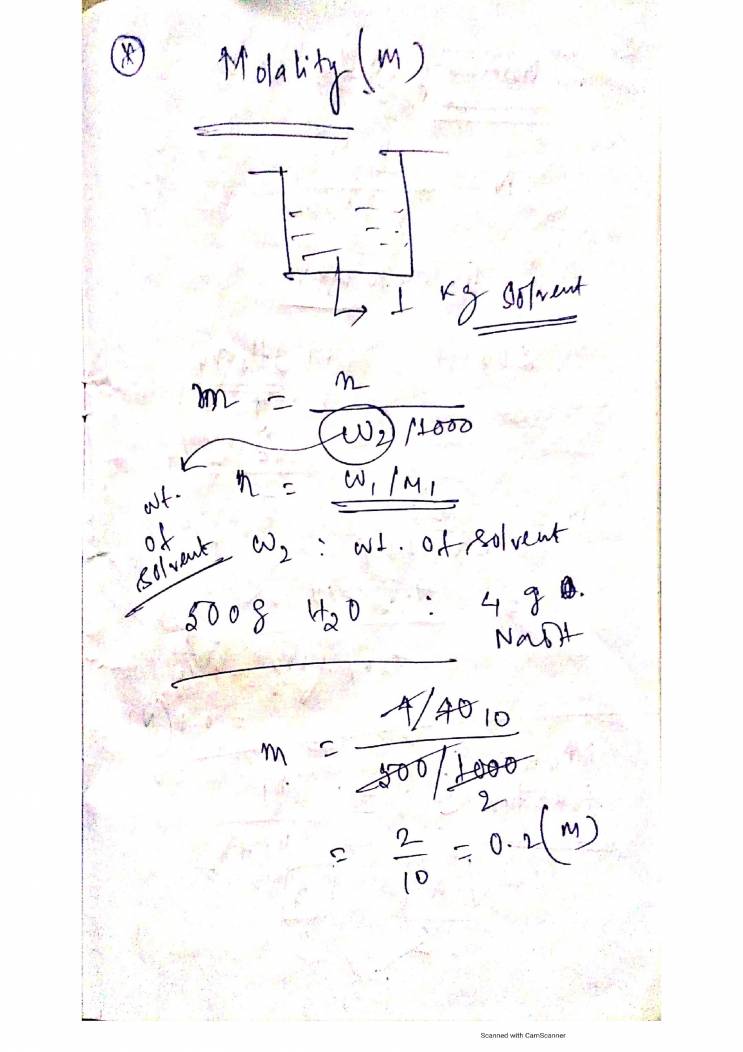 * Molality (m)
1 kg solvent
m = n / w₂/1000
wt. of solvent
n = w₁/M₁
w₂ : wt. of solvent
500g H₂O : 4 g
NaOH
m = 4/40 10 / 500/1000 2
= 2/10 = 0.2 (m)
Scanned with CamScanner